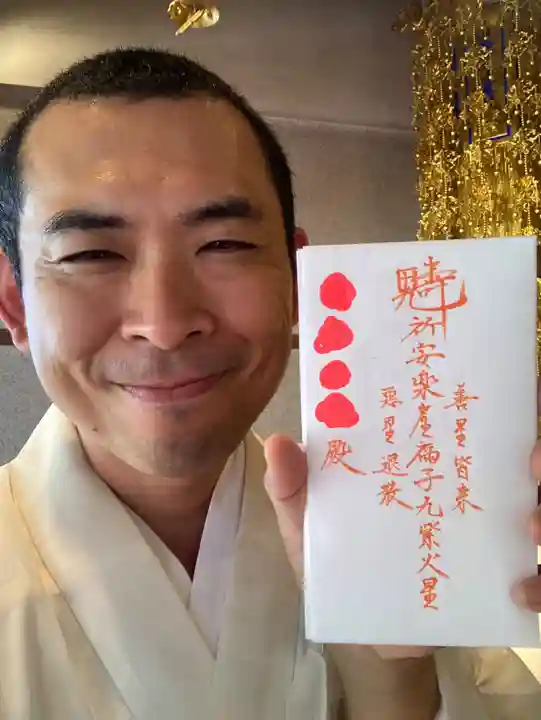 善星皆来
祈安楽産福子九紫火星
悪星退散
殿